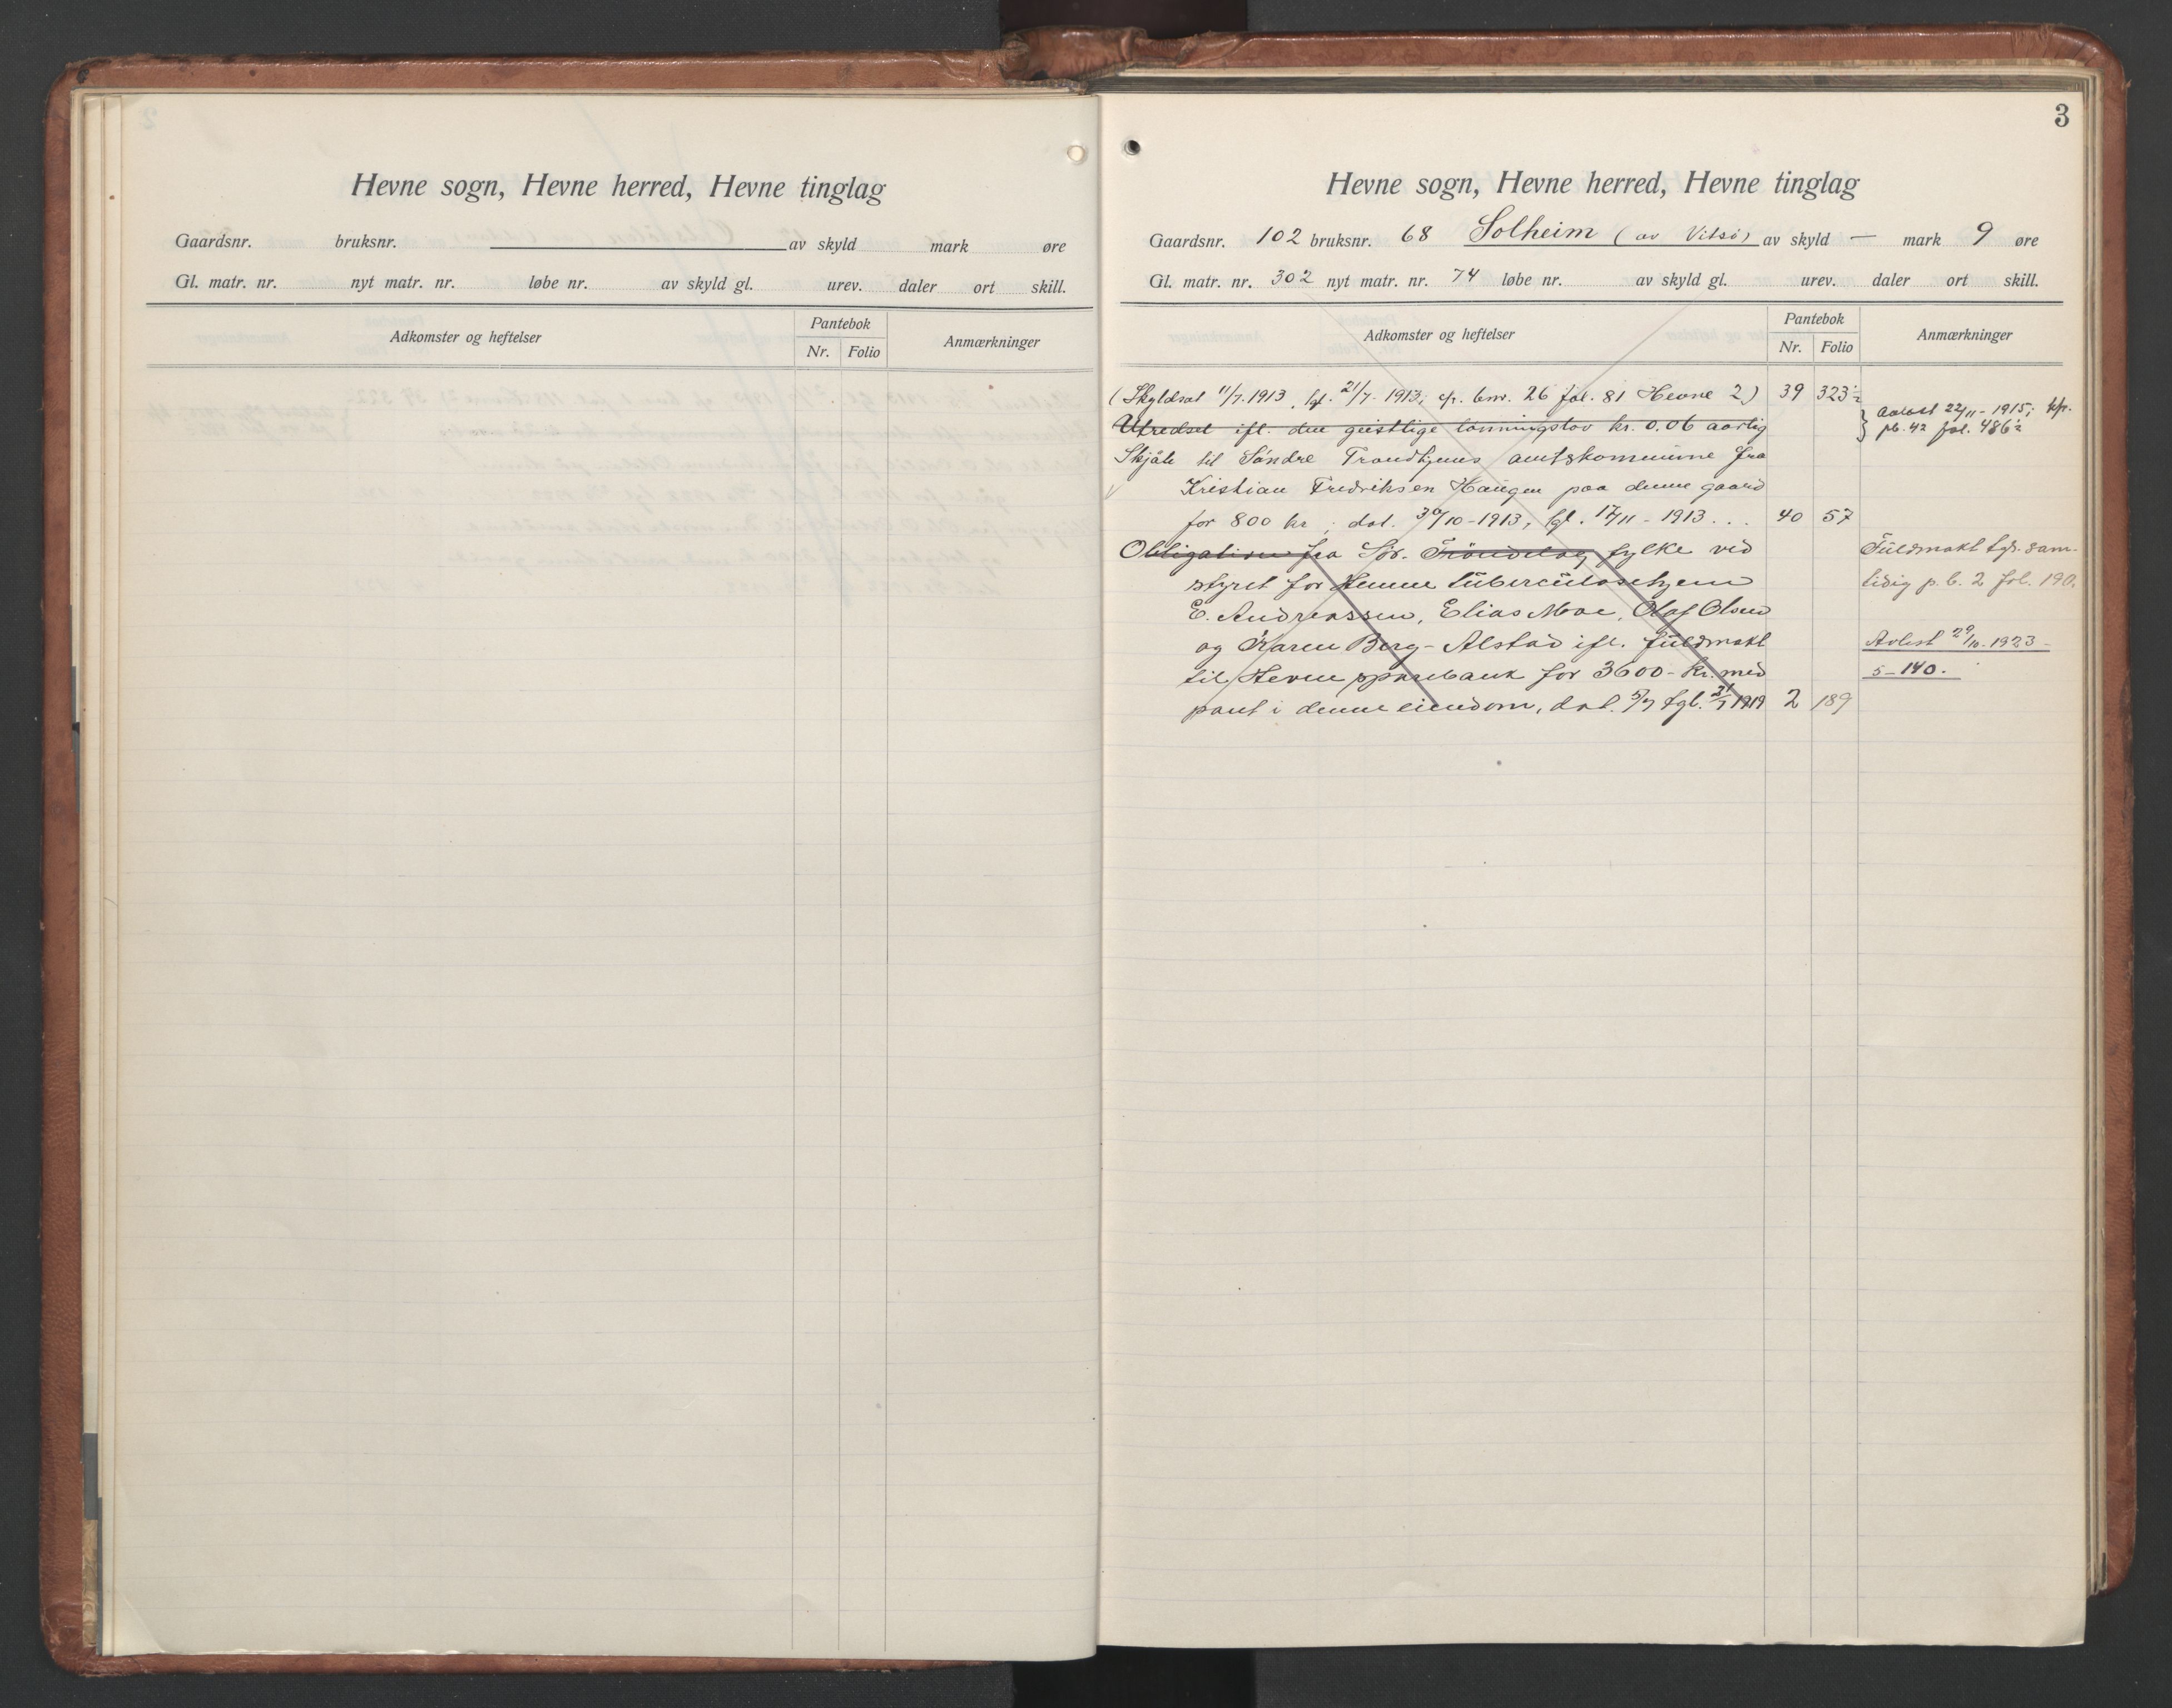 Hevne sogn, Hevne herred, Hevne tinglag
Gaardsnr. bruksnr. av skyld mark øre
Gl. matr. nr. nyt matr. nr. løbe nr. av skyld gl. urev. daler ort skill.
Adkomster og heftelser Pantebok Anmærkninger
Nr. Folio
3
Hevne sogn, Hevne herred, Hevne tinglag
Gaardsnr. 102 bruksnr. 68 Solheim (av Vitsö) av skyld — mark 9 øre
Gl. matr. nr. 302 nyt matr. nr. 74 løbe nr. av skyld gl. urev. daler ort skill.
Adkomster og heftelser Pantebok Anmærkninger
Nr. Folio
(Skyldsat 11/7.1913, tgl. 21/7-1913; cfr. bnr. 26 fol. 81 Hevne 2) 39 323½
Utredsel ifl. den geistlige lønningslov kr. 0.06 aarlig
} Avløst 22/11-1915; kfr.
pb. 42 fol. 486½
Skjöte til Söndre Trondhjems amtskommune fra
Kristian Fredriksen Haugen paa denne gaard
for 800 kr; dat. 30/10-1913, tgl. 17/11-1913... 40 57
Obligation fra Sör-Tröndelag fylke ved
styret for Hemne tüberculosehjem
E. Andreassen, Elias Moe, Olaf Olsen
og Karen Berg-Alstad ifl. füldmakt
til Hevne sparebank for 3600- kr. med
pant i denne eiendom, dat. 5/7 tgl. 21/7 1919 2 189
Füldmakt tgl. sam-
tidig p.b. 2 fol. 190.
Avlest 29/10.1923-
5-140.